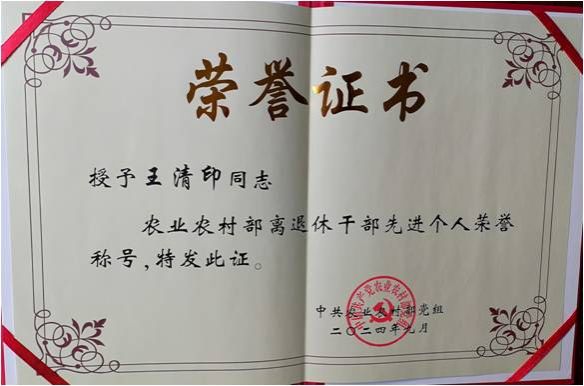 荣誉证书
授予王清印同志
农业农村部离退休干部先进个人荣誉
称号,特发此证。
中共农业农村部党组
二〇二四年九月